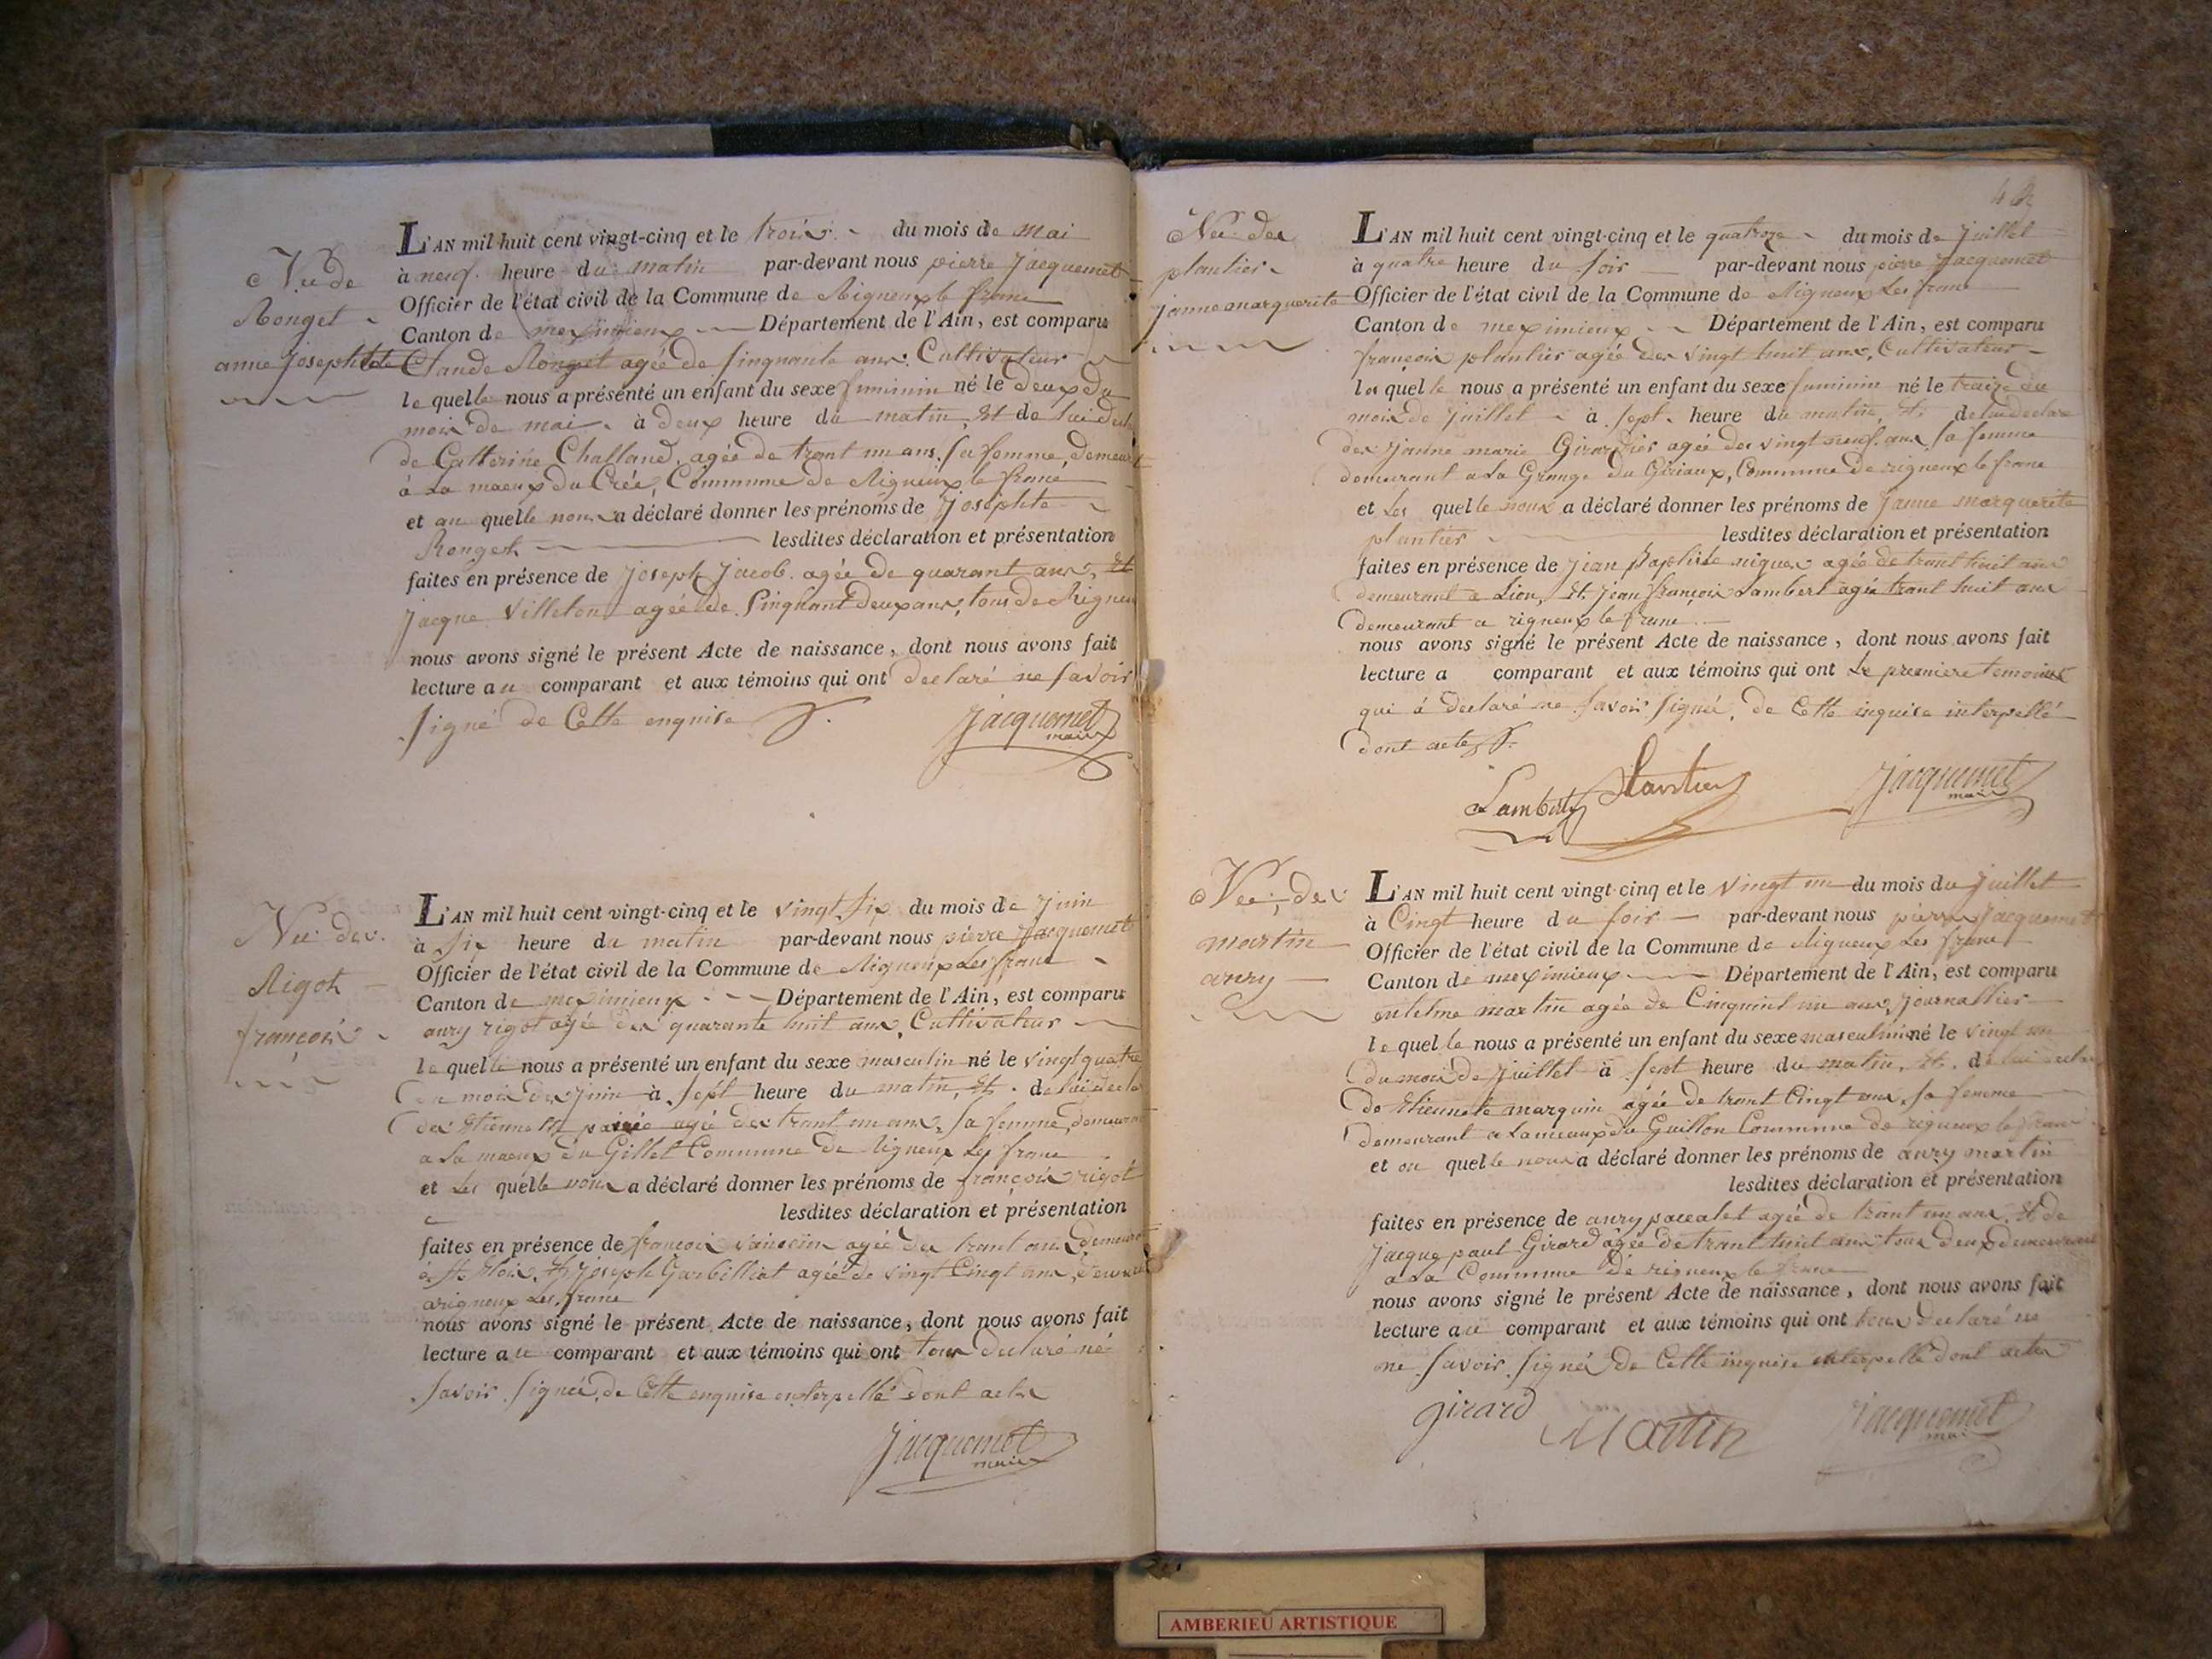 Née de
Ronget
anne Josephte
L'AN mil huit cent vingt-cinq et le trois du mois de mai
à neuf heure du matin par-devant nous pierre Jacquemet
Officier de l'état civil de la Commune de Rigneux le franc
Canton de meximieux Département de l'Ain, est comparu
Claude Ronget agée de sinquante ans Cultivateur
le quelle nous a présenté un enfant du sexe feminin né le deux du
mois de mai à deux heure du matin, Et de lui
de Catterine Challand, agée de trant un ans sa femme, demeur
à La maeux du Crée, Commune de Rigneux le franc
et au quelle nous a déclaré donner les prénoms de Josephte
Ronget lesdites déclaration et présentation
faites en présence de Joseph Jacob agée de quarant ans, Et
Jacque Villeton agée de Sinquant deux ans, tous de Rigneu
nous avons signé le présent Acte de naissance, dont nous avons fait
lecture au comparant et aux témoins qui ont declaré ne savoir
signé de Cette enquise
Jacquemet
maire
Née des
Rigot
françois
L'AN mil huit cent vingt-cinq et le vingt six du mois de Juin
à six heure du matin par-devant nous pierre Jacquemet
Officier de l'état civil de la Commune de Rigneux Les franc
Canton de meximieux Département de l'Ain, est comparu
aury rigot agée des quarante huit ans, Cultivateur
le quelle nous a présenté un enfant du sexe masculin né le vingt quatre
du mois des Juin à sept heure du matin, Et de lui decla
des Etiennette agée des trant un ans, sa femme, demeurant
a La maeux du Gillet Commune de Rigneux Les franc
et Les quelle nous a déclaré donner les prénoms de françois rigot
lesdites déclaration et présentation
faites en présence de françois agée des trant ans, demeurant
à St Eloix, Et Joseph Garbilliat agée de vingt Cingt ans,
arigneux Les franc
nous avons signé le présent Acte de naissance, dont nous avons fait
lecture au comparant et aux témoins qui ont tous declaré né
savoir signée, de Cette enquise enterpellé dont actes
Jacquemet
maire
Née des
plantier
janne marguerite
L'AN mil huit cent vingt-cinq et le quatroze du mois de Juillet
à quatre heure du soir par-devant nous pierre Jacquemet
Officier de l'état civil de la Commune de Rigneux Les franc
Canton de meximieux Département de l'Ain, est comparu
françois plantier agée des vingt huit ans, Cultivateur
les quelle nous a présenté un enfant du sexe feminin né le traize du
mois de Juillet à sept heure du matin, Et de lui declare
des Janne marie Girardier agée des vingt neuf ans sa femme
demeurant a La Grange du Giriaux, Commune de rigneux le franc
et Les quelle nous a déclaré donner les prénoms de Janne marguerite
plantier lesdites déclaration et présentation
faites en présence de Jean Baptiste agée de trant huit ans
demeurant a Lion, Et Jean françois Lambert agée trant huit ans
demeurant a rigneux le franc
nous avons signé le présent Acte de naissance, dont nous avons fait
lecture a comparant et aux témoins qui ont Le premiere temoint
qui à declaré ne savoir signé, de Cette inquise interpellé
dont actes
Lambert
Plantier
Jacquemet
maire
Née des
martin
aury
L'AN mil huit cent vingt-cinq et le vingt un du mois du Juillet
à Cingt heure du soir par-devant nous pierre Jacquemet
Officier de l'état civil de la Commune de Rigneux Les franc
Canton de meximieux Département de l'Ain, est comparu
entelme martin agée de Cinquint un ans, Journallier
le quelle nous a présenté un enfant du sexe masculin né le vingt un
du mois de Juillet à sept heure du matin, Et de lui declar
de Etiennete marquin agée de trant Cingt ans, sa femme
demeurant a Lameaux du Guillon Commune de rigneux le franc
et au quelle nous a déclaré donner les prénoms de aury martin
lesdites déclaration et présentation
faites en présence de aury paccalet agée de trant un ans, Et de
Jacque paul Girard agée de trant huit ans tous deux demeurant
a La Commune de rigneux le franc
nous avons signé le présent Acte de naissance, dont nous avons fait
lecture au comparant et aux témoins qui ont tous declaré ne
ne savoir signée de Cette inquise enterpellé dont actes
girard
Martin
Jacquemet
maire
AMBERIEU ARTISTIQUE